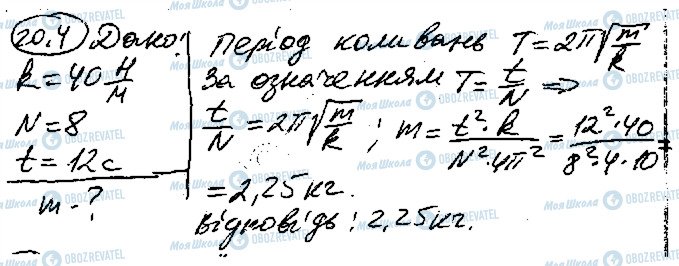 20.4 Дано:
k = 40 Н/м
N = 8
t = 12 с
m - ?
Період коливань T = 2π√(m/k)
За означенням T = t/N ⇒
t/N = 2π√(m/k); m = t²·k/N²·4π² = 12²·40/8²·4·10 =
= 2,25 кг.
Відповідь: 2,25 кг.